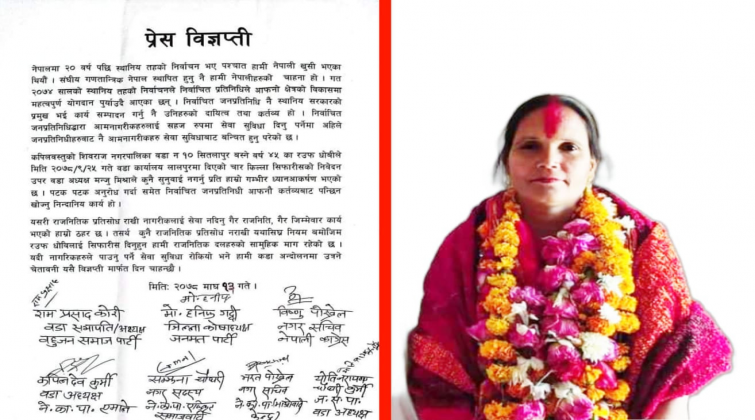 प्रेस विज्ञप्ती
नेपालमा २० वर्ष पछि स्थानिय तहको निर्वाचन भए पश्चात हामी नेपाली खुसी भएका
थियौं । संघीय गणतान्त्रिक नेपाल स्थापित हुनु नै हामी नेपालीहरुको चाहना हो । गत
२०७४ सालको स्थानिय तहको निर्वाचनले निर्वाचित प्रतिनिधिले आफनो क्षेत्रको विकासमा
महत्वपूर्ण योगदान पुर्याउदै आएका छन् । निर्वाचित जनप्रतिनिधी नै स्थानिय सरकारको
प्रमुख भई कार्य सम्पादन गर्नु नै उनिहरुको दायित्व तथा कर्तव्य हो । निर्वाचित
जनप्रतिनिधिद्वारा आमनागरीकहरुलाई सहज रुपमा सेवा सुविधा दिनु पर्नेमा अहिले
जनप्रतिनिधीहरुबाट नै आमनागरीकहरु सेवा सुविधाबाट बन्चित हुनु परेको छ ।
कपिलवस्तुको शिवराज नगरपालिका वडा न १० सितलापुर बस्ने वर्ष ४५ का रउफ धोबीले
मिति २०७८/९/२५ गते वडा कार्यालय लालपुरमा दिएको चार किल्ला सिफारीसको निवेदन
उपर वडा अध्यक्ष मन्जु मिश्राले कुनै सुनुवाई नगर्नु प्रति हाम्रो गम्भीर ध्यानआकर्षण भएको
छ । पटक पटक अनुरोध गर्दा समेत निर्वाचित जनप्रतिनिधी आफनौ कर्तव्यबाट पन्छिन
खोज्नु निन्दानिय कार्य हो ।
यसरी राजनितिक प्रतिसोध राखी नागरीकलाई सेवा नदिनु गैर राजनिति, गैर जिम्मेवार कार्य
भएको हाम्रो ठहर छ । तसर्थ कुनै राजनितिक प्रतिसोध नराखी यथासिघ्र नियम बमोजिम
रउफ धोविलाई सिफारिस दिनुहुन हामी राजनितिक दलहरुको सामुहिक माग रहेको छ ।
यदी नागरिकहरुले पाउनु पर्ने सेवा सुविधा रोकियो भने हामी कडा अन्दोलनमा उत्रने
चेतावनी यसै विज्ञप्ती मार्फत दिन चाहन्छौं ।
मिति: २०७८ माघ १३ गते ।
मो. हनीफ
राम प्रसाद कोरी
वडा सभापति/अध्यक्ष
वहुजन समाज पार्टी
मो. हनिफ गद्दी
जिल्ला कोषाध्यक्ष
जनमत पार्टी
विष्णु पोखेल
नगर सचिव
नेपाली कांग्रेस
कपिल देव कुर्मी
वडा अध्यक्ष
ने.का.पा. एमाले
चौधरी
नगर सदस्य
समाजवादी
भरत पोखेल
सचिव
ज. स. पा.
वडा अध्यक्ष